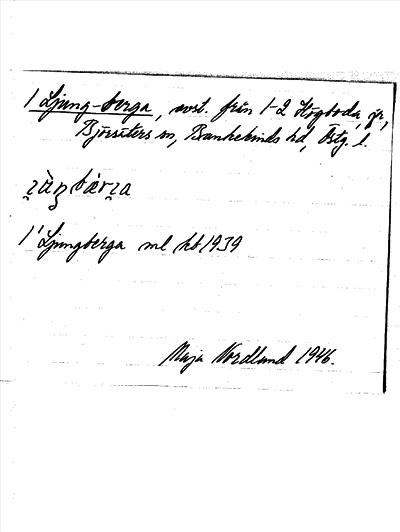 1 Ljung-berga, avst. från 1-2 Högboda, gr,
Björsäters sn, Bankekinds hd, Östg. l.
1' Ljungberga ml hb 1939
Maja Nordlund 1946.